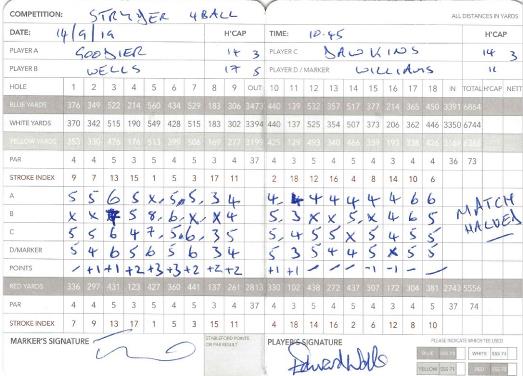 COMPETITION: STRYDER 4BALL ALL DISTANCES IN YARDS
DATE: 14/9/19 H'CAP TIME: 10.45 H'CAP
PLAYER A GOODIER 14 3 PLAYER C DAWKINS 14 3
PLAYER B WELLS 17 5 PLAYER D / MARKER WILLIAMS 11
HOLE 1 2 3 4 5 6 7 8 9 OUT 10 11 12 13 14 15 16 17 18 IN TOTAL H'CAP NETT
BLUE YARDS 376 349 522 214 560 434 529 183 306 3473 440 139 532 357 517 377 214 365 450 3391 6864
WHITE YARDS 370 342 515 190 549 428 515 183 302 3394 440 137 525 354 507 373 206 362 446 3350 6744
YELLOW YARDS
PAR 4 4 5 3 5 4 5 3 4 37 4 3 5 4 5 4 3 4 4 36 73
STROKE INDEX 9 7 13 15 1 5 3 17 11 2 18 12 16 4 8 14 10 6
A 5 5 6 5 x 5 5 3 4 4 4 4 4 4 4 4 6 6
B x x 5 8 6 x x 4 5 3 x x 5 x 4 6 5
C 5 5 6 4 7 5 6 3 5 5 4 5 5 x 5 4 5 5
D/MARKER 5 4 6 5 6 5 6 3 4 5 3 5 4 4 5 x 5 5
POINTS – +1 +1 +2 +3 +3 +2 +2 +2 +1 +1 – – – -1 -1 – –
MATCH HALVED
RED YARDS 336 297 431 123 427 360 441 137 261 2813 330 102 438 272 437 307 172 304 381 2743 5556
PAR 4 4 5 3 5 4 5 3 4 37 4 3 5 4 5 4 3 4 5 37 74
STROKE INDEX 7 9 13 17 1 5 3 15 11 4 18 14 16 2 6 12 8 10
MARKER'S SIGNATURE STABLEFORD POINTS OR PAR RESULT PLAYER'S SIGNATURE Edward Wells PLEASE INDICATE WHICH TEE USED
BLUE SSS 73 WHITE SSS 73
YELLOW SSS 71 RED SSS 73